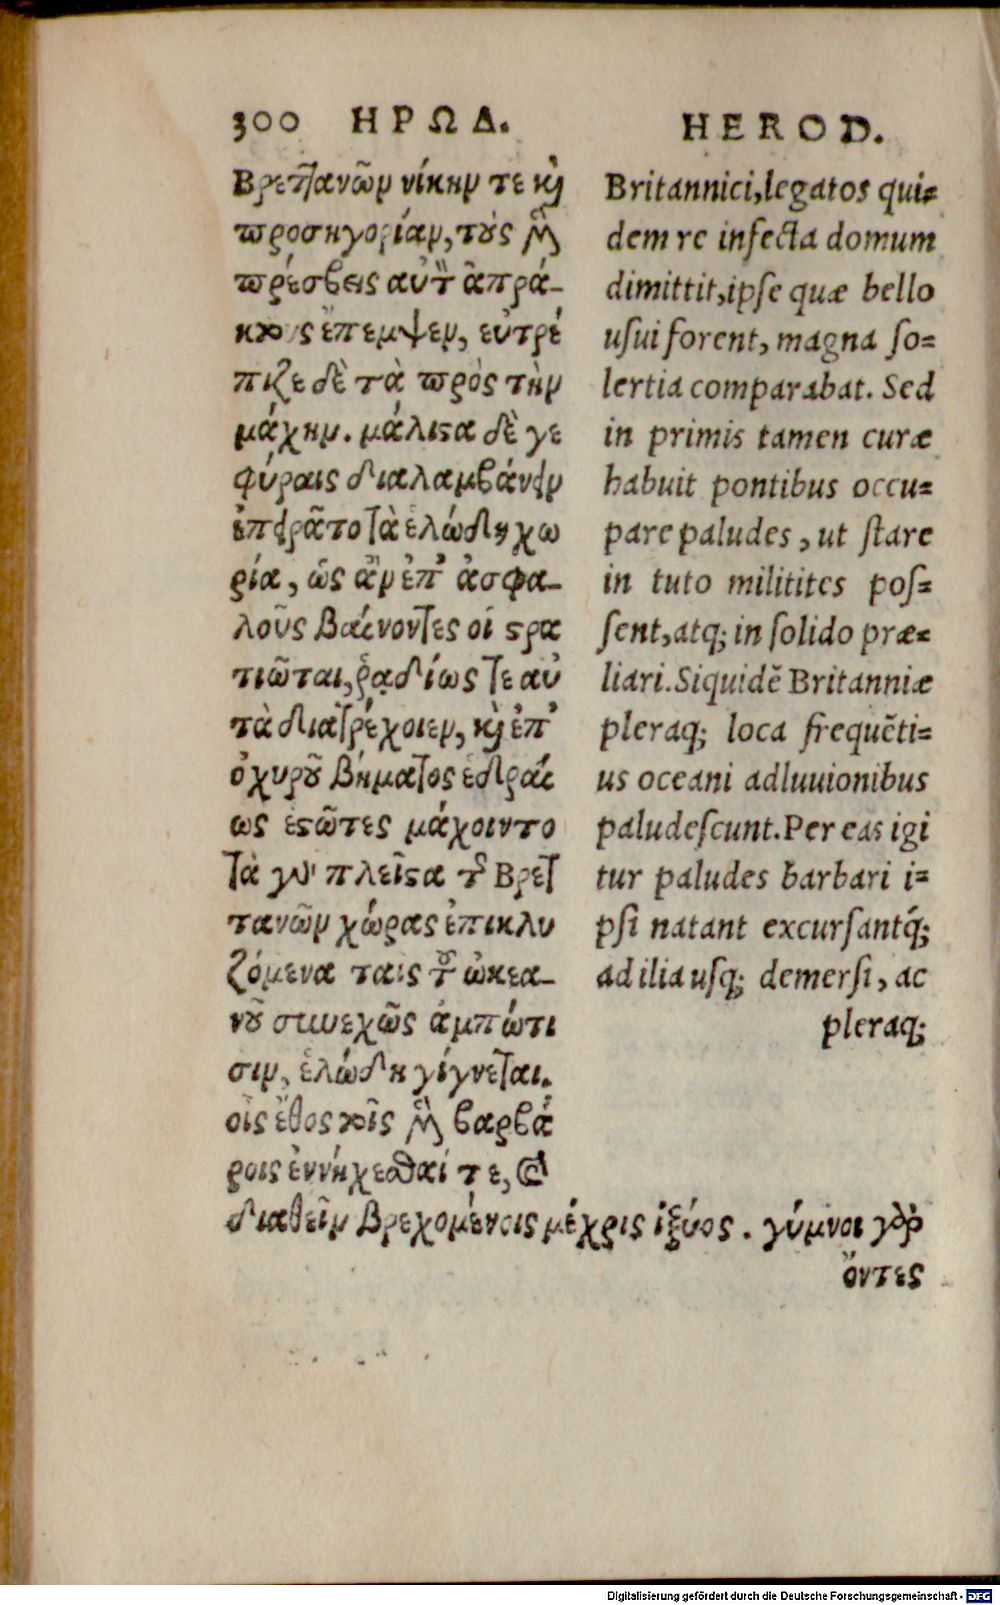 300 ΗΡΩΔ.
Βρετλανῶν νίκην τε καὶ
προσηγορίαν, τοὺς μὲν
πρέσβεις αὐτῶν ἀπρά-
κτους ἔπεμψεν, εὐτρέ
πιζε δὲ τὰ πρὸς τὴν
μάχην. μάλιστα δὲ γε
φύραις διαλαμβάνειν
ἐπειρᾶτο τὰ ἑλώδη χω
ρία, ὡς ἂν ἐπ' ἀσφα-
λοῦς βαίνοντες οἱ στρα
τιῶται, ῥᾳδίως τε αὐ
τὰ διατρέχοιεν, καὶ ἐπ'
ὀχυροῦ βήματος ἑδραί
ως ἑστῶτες μάχοιντο
Τὰ γὰρ πλεῖστα τῆς Βρετ
τανῶν χώρας ἐπικλυ
ζόμενα ταις τοῦ ὠκεα-
νοῦ συνεχῶς ἀμπώτι
σιν, ἑλώδη γίγνεται.
οἷς ἔθος τοῖς μὲν βαρβά
ροις ἐννήχεσθαί τε, καὶ
διαθεῖν βρεχομένοις μέχρις ἰξύος. γύμνοι γὰρ
ὄντες
HEROD.
Britannici, legatos qui=
dem re infecta domum
dimittit, ipse quæ bello
usui forent, magna so=
lertia comparabat. Sed
in primis tamen curæ
habuit pontibus occu=
pare paludes, ut stare
in tuto militites pos=
sent, atq; in solido præ=
liari. Siquidẽ Britanniæ
pleraq; loca frequẽti=
us oceani adluuionibus
paludescunt. Per eas igi
tur paludes barbari i=
psi natant excursantq́;
ad ilia usq; demersi, ac
pleraq;
Digitalisierung gefördert durch die Deutsche Forschungsgemeinschaft - DFG